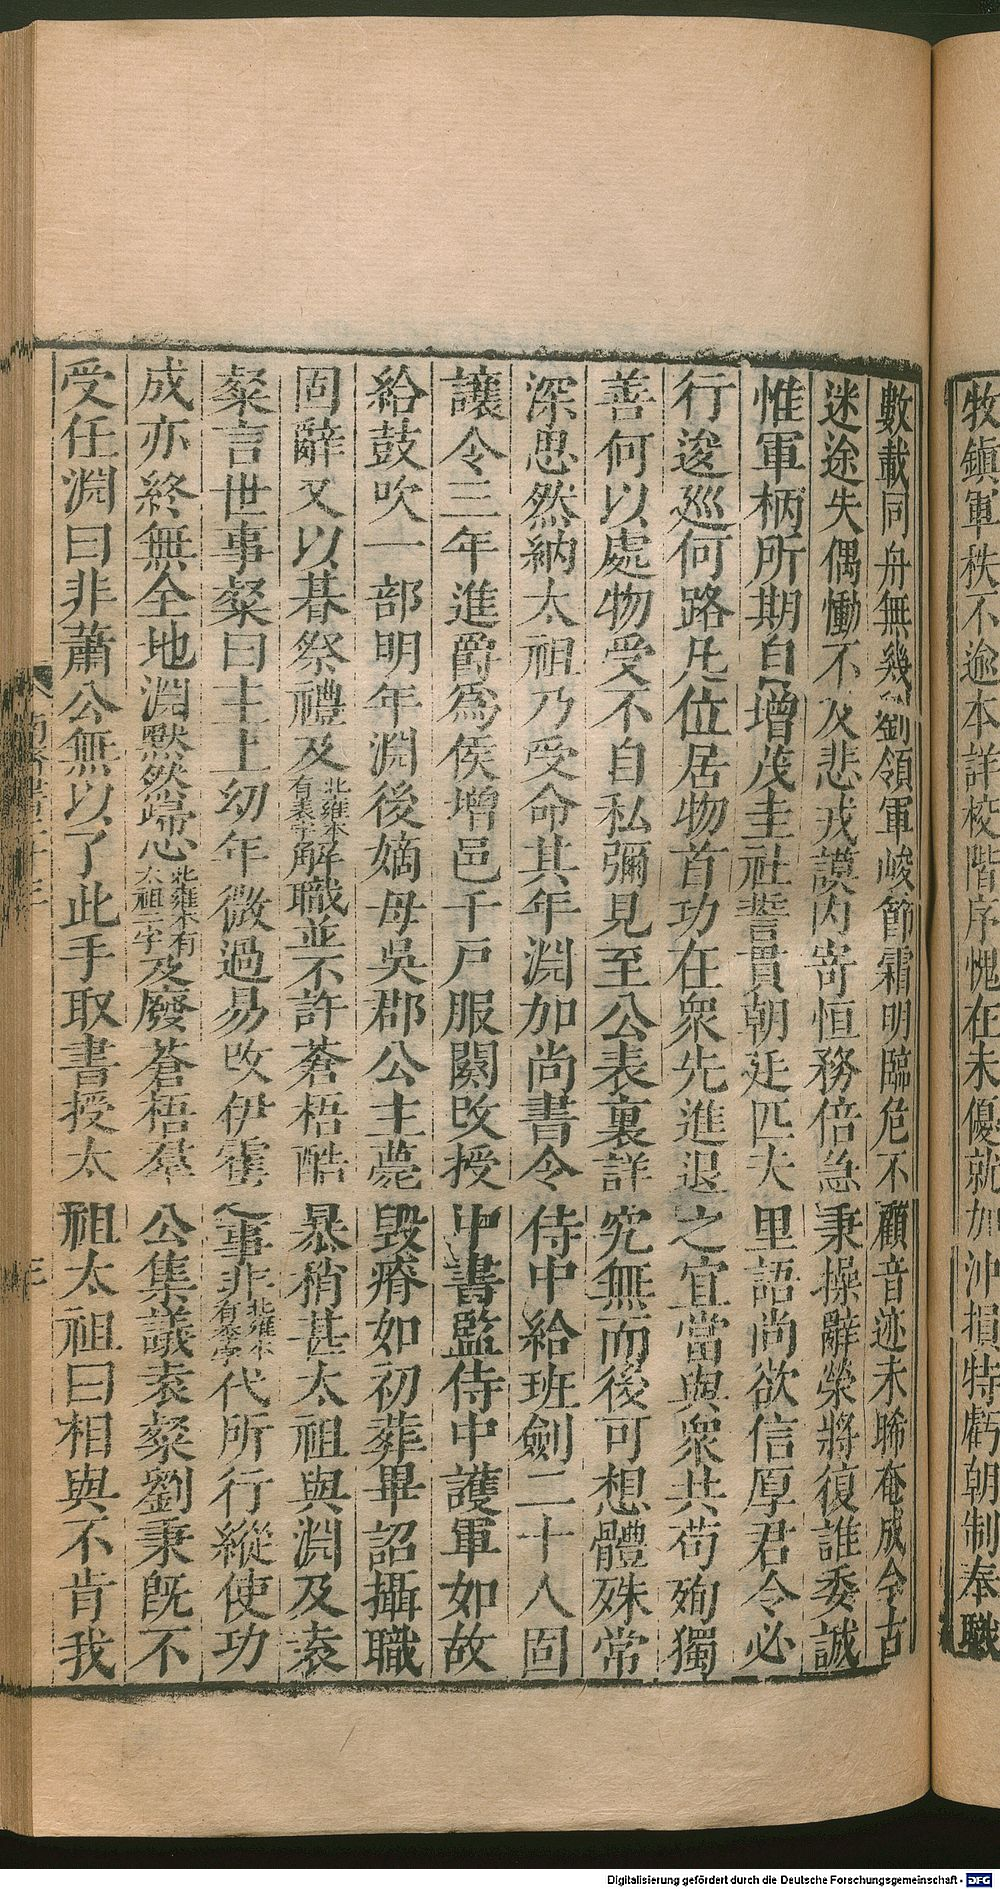 牧鎮軍秩不逾本詳校階序愧在未優就加沖損特虧朝制奉職
數載同舟無幾劉領軍峻節霜明臨危不顧音迹未晞奄成今古
迷途失偶慟不及悲戎謨內寄恒務倍急秉操辭榮將復誰委誠
惟軍柄所期自增茂圭社誓貫朝廷匹夫里語尚欲信厚君令必
行逡巡何路凡位居物首功在衆先進退之宜當與衆共苟殉獨
善何以處物受不自私彌見至公表裏詳究無而後可想體殊常
深思然納太祖乃受命其年淵加尚書令侍中給班劍二十人固
讓令三年進爵爲侯增邑千戶服闋改授中書監侍中護軍如故
給鼓吹一部明年淵後嫡母吳郡公主薨毀瘠如初葬畢詔攝職
固辭又以朞祭禮及北雍本有表字解職並不許蒼梧酷暴稍甚太祖與淵及袁
粲言世事粲曰主上幼年微過易改伊霍之事非北雍本有季字代所行縱使功
成亦終無全地淵默然歸心北雍本有太祖二字及廢蒼梧羣公集議袁粲劉秉旣不
受任淵曰非蕭公無以了此手取書授太祖太祖曰相與不肯我
Digitalisierung gefördert durch die Deutsche Forschungsgemeinschaft - DFG